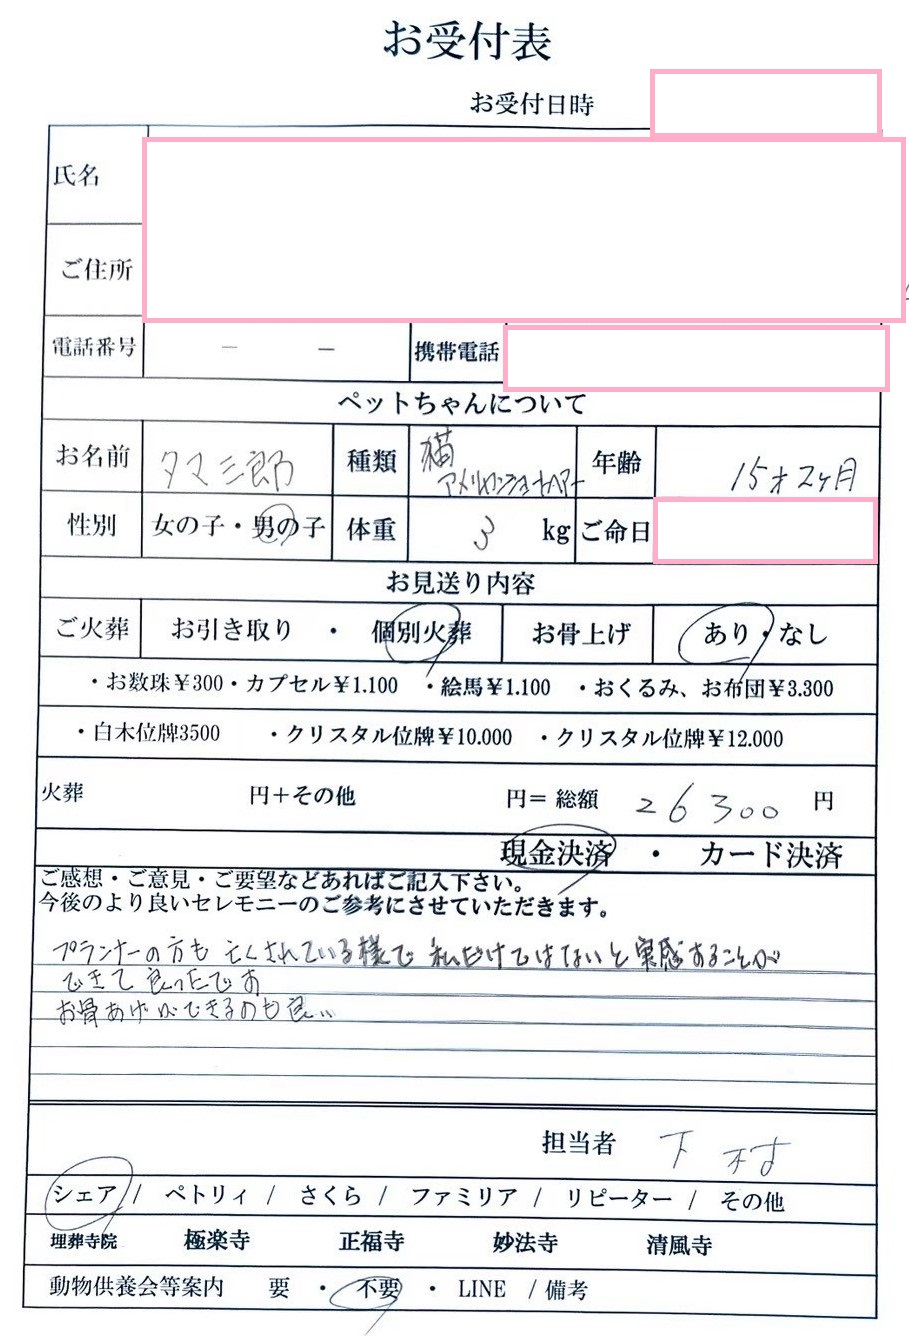 お受付表
お受付日時
氏名
ご住所
電話番号 － － 携帯電話
ペットちゃんについて
お名前 タマ三郎 種類 猫 アメリカンショートヘアー 年齢 15才2ヶ月
性別 女の子・男の子 体重 3 kg ご命日
お見送り内容
ご火葬 お引き取り ・ 個別火葬 お骨上げ あり・なし
・お数珠￥300・カプセル￥1.100 ・絵馬￥1.100 ・おくるみ、お布団￥3.300
・白木位牌3500 ・クリスタル位牌￥10.000 ・クリスタル位牌￥12.000
火葬 円＋その他 円＝ 総額 26300 円
現金決済 ・ カード決済
ご感想・ご意見・ご要望などあればご記入下さい。
今後のより良いセレモニーのご参考にさせていただきます。
プランナーの方も亡くされている様で 私だけではないと実感することが
できて良ったです
お骨あげができるのも良い
担当者 下村
シェア / ペトリィ / さくら / ファミリア / リピーター / その他
埋葬寺院 極楽寺 正福寺 妙法寺 清風寺
動物供養会等案内 要 ・ 不要 ・ LINE / 備考